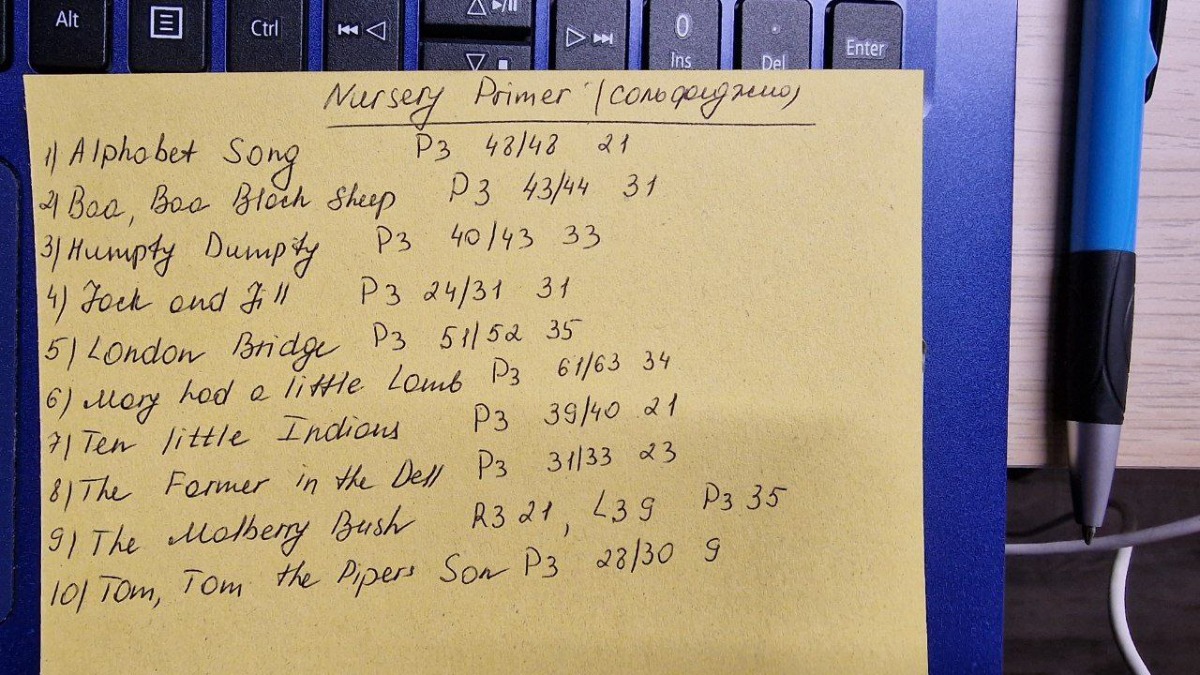 Alt
Ctrl
0
Ins
.
Del
Enter
Nursery Primer (сольфеджио)
1) Alphabet Song P3 48/48 21
2) Baa, Baa Black Sheep P3 43/44 31
3) Humpty Dumpty P3 40/43 33
4) Jack and Jill P3 24/31 31
5) London Bridge P3 51/52 35
6) Mary had a little Lamb P3 61/63 34
7) Ten little Indians P3 39/40 21
8) The Farmer in the Dell P3 31/33 23
9) The Malberry Bush R3 21, L3 9 P3 35
10) Tom, Tom the Pipers Son P3 28/30 9